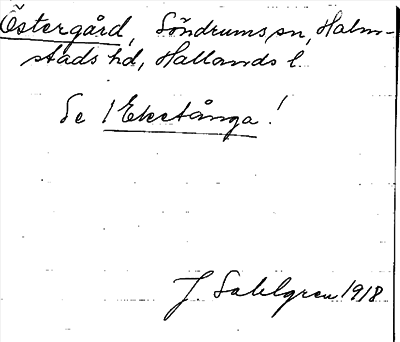 Östergård, Söndrums sn, Halm-
stads hd, Hallands l.
Se 1 Eketånga!
J. Sahlgren 1918